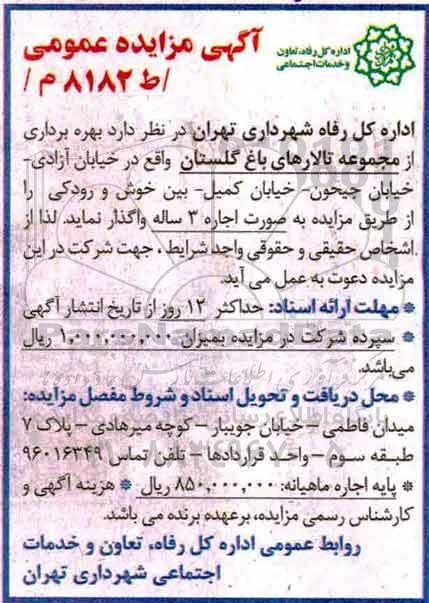 اداره کل رفاه، تعاون
و خدمات اجتماعی
آگهی مزایده عمومی
/ط ۸۱۸۲ م/
اداره کل رفاه شهرداری تهران در نظر دارد بهره برداری
از مجموعه تالارهای باغ گلستان واقع در خیابان آزادی-
خیابان جیحون- خیابان کمیل- بین خوش و رودکی را
از طریق مزایده به صورت اجاره ۳ ساله واگذار نماید. لذا از
اشخاص حقیقی و حقوقی واجد شرایط، جهت شرکت در این
مزایده دعوت به عمل می آید.
* مهلت ارائه اسناد: حداکثر ۱۲ روز از تاریخ انتشار آگهی
* سپرده شرکت در مزایده بمیزان ۱,۰۰۰,۰۰۰,۰۰۰ ریال
می‌باشد.
* محل دریافت و تحویل اسناد و شروط مفصل مزایده:
میدان فاطمی – خیابان جویبار – کوچه میرهادی – پلاک ۷
طبقه سوم – واحد قراردادها – تلفن تماس ۹۶۰۱۶۳۴۹
* پایه اجاره ماهیانه: ۸۵۰,۰۰۰,۰۰۰ ریال * هزینه آگهی و
کارشناس رسمی مزایده، برعهده برنده می باشد.
روابط عمومی اداره کل رفاه، تعاون و خدمات
اجتماعی شهرداری تهران